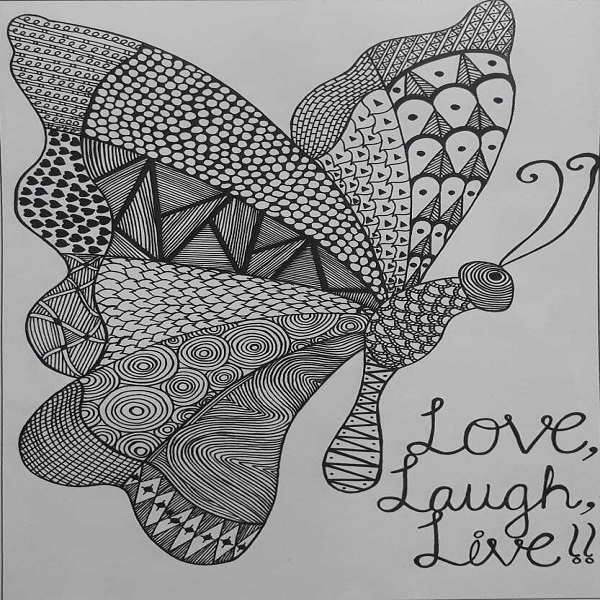 Love,
Laugh,
Live!!